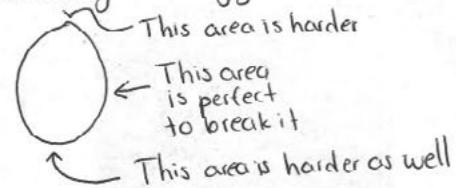 This area is harder
This area
is perfect
to break it
This area is harder as well